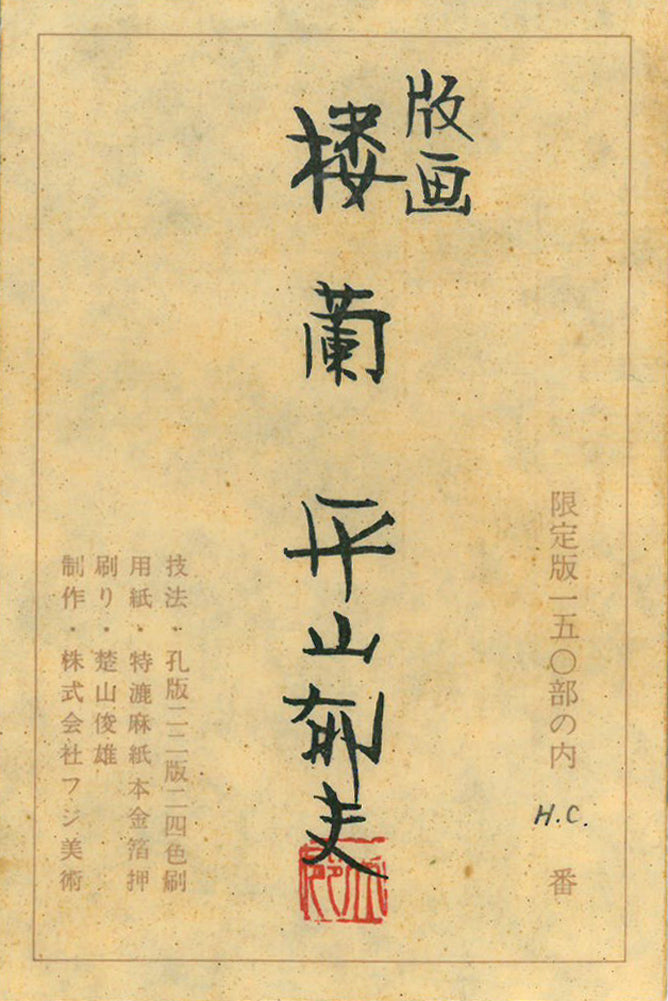 限定版一五〇部の内 H.C. 番
版画
楼蘭 平山郁夫
技法・孔版二二版二四色刷
用紙・特漉麻紙本金箔押
刷り・楚山俊雄
制作・株式会社フジ美術